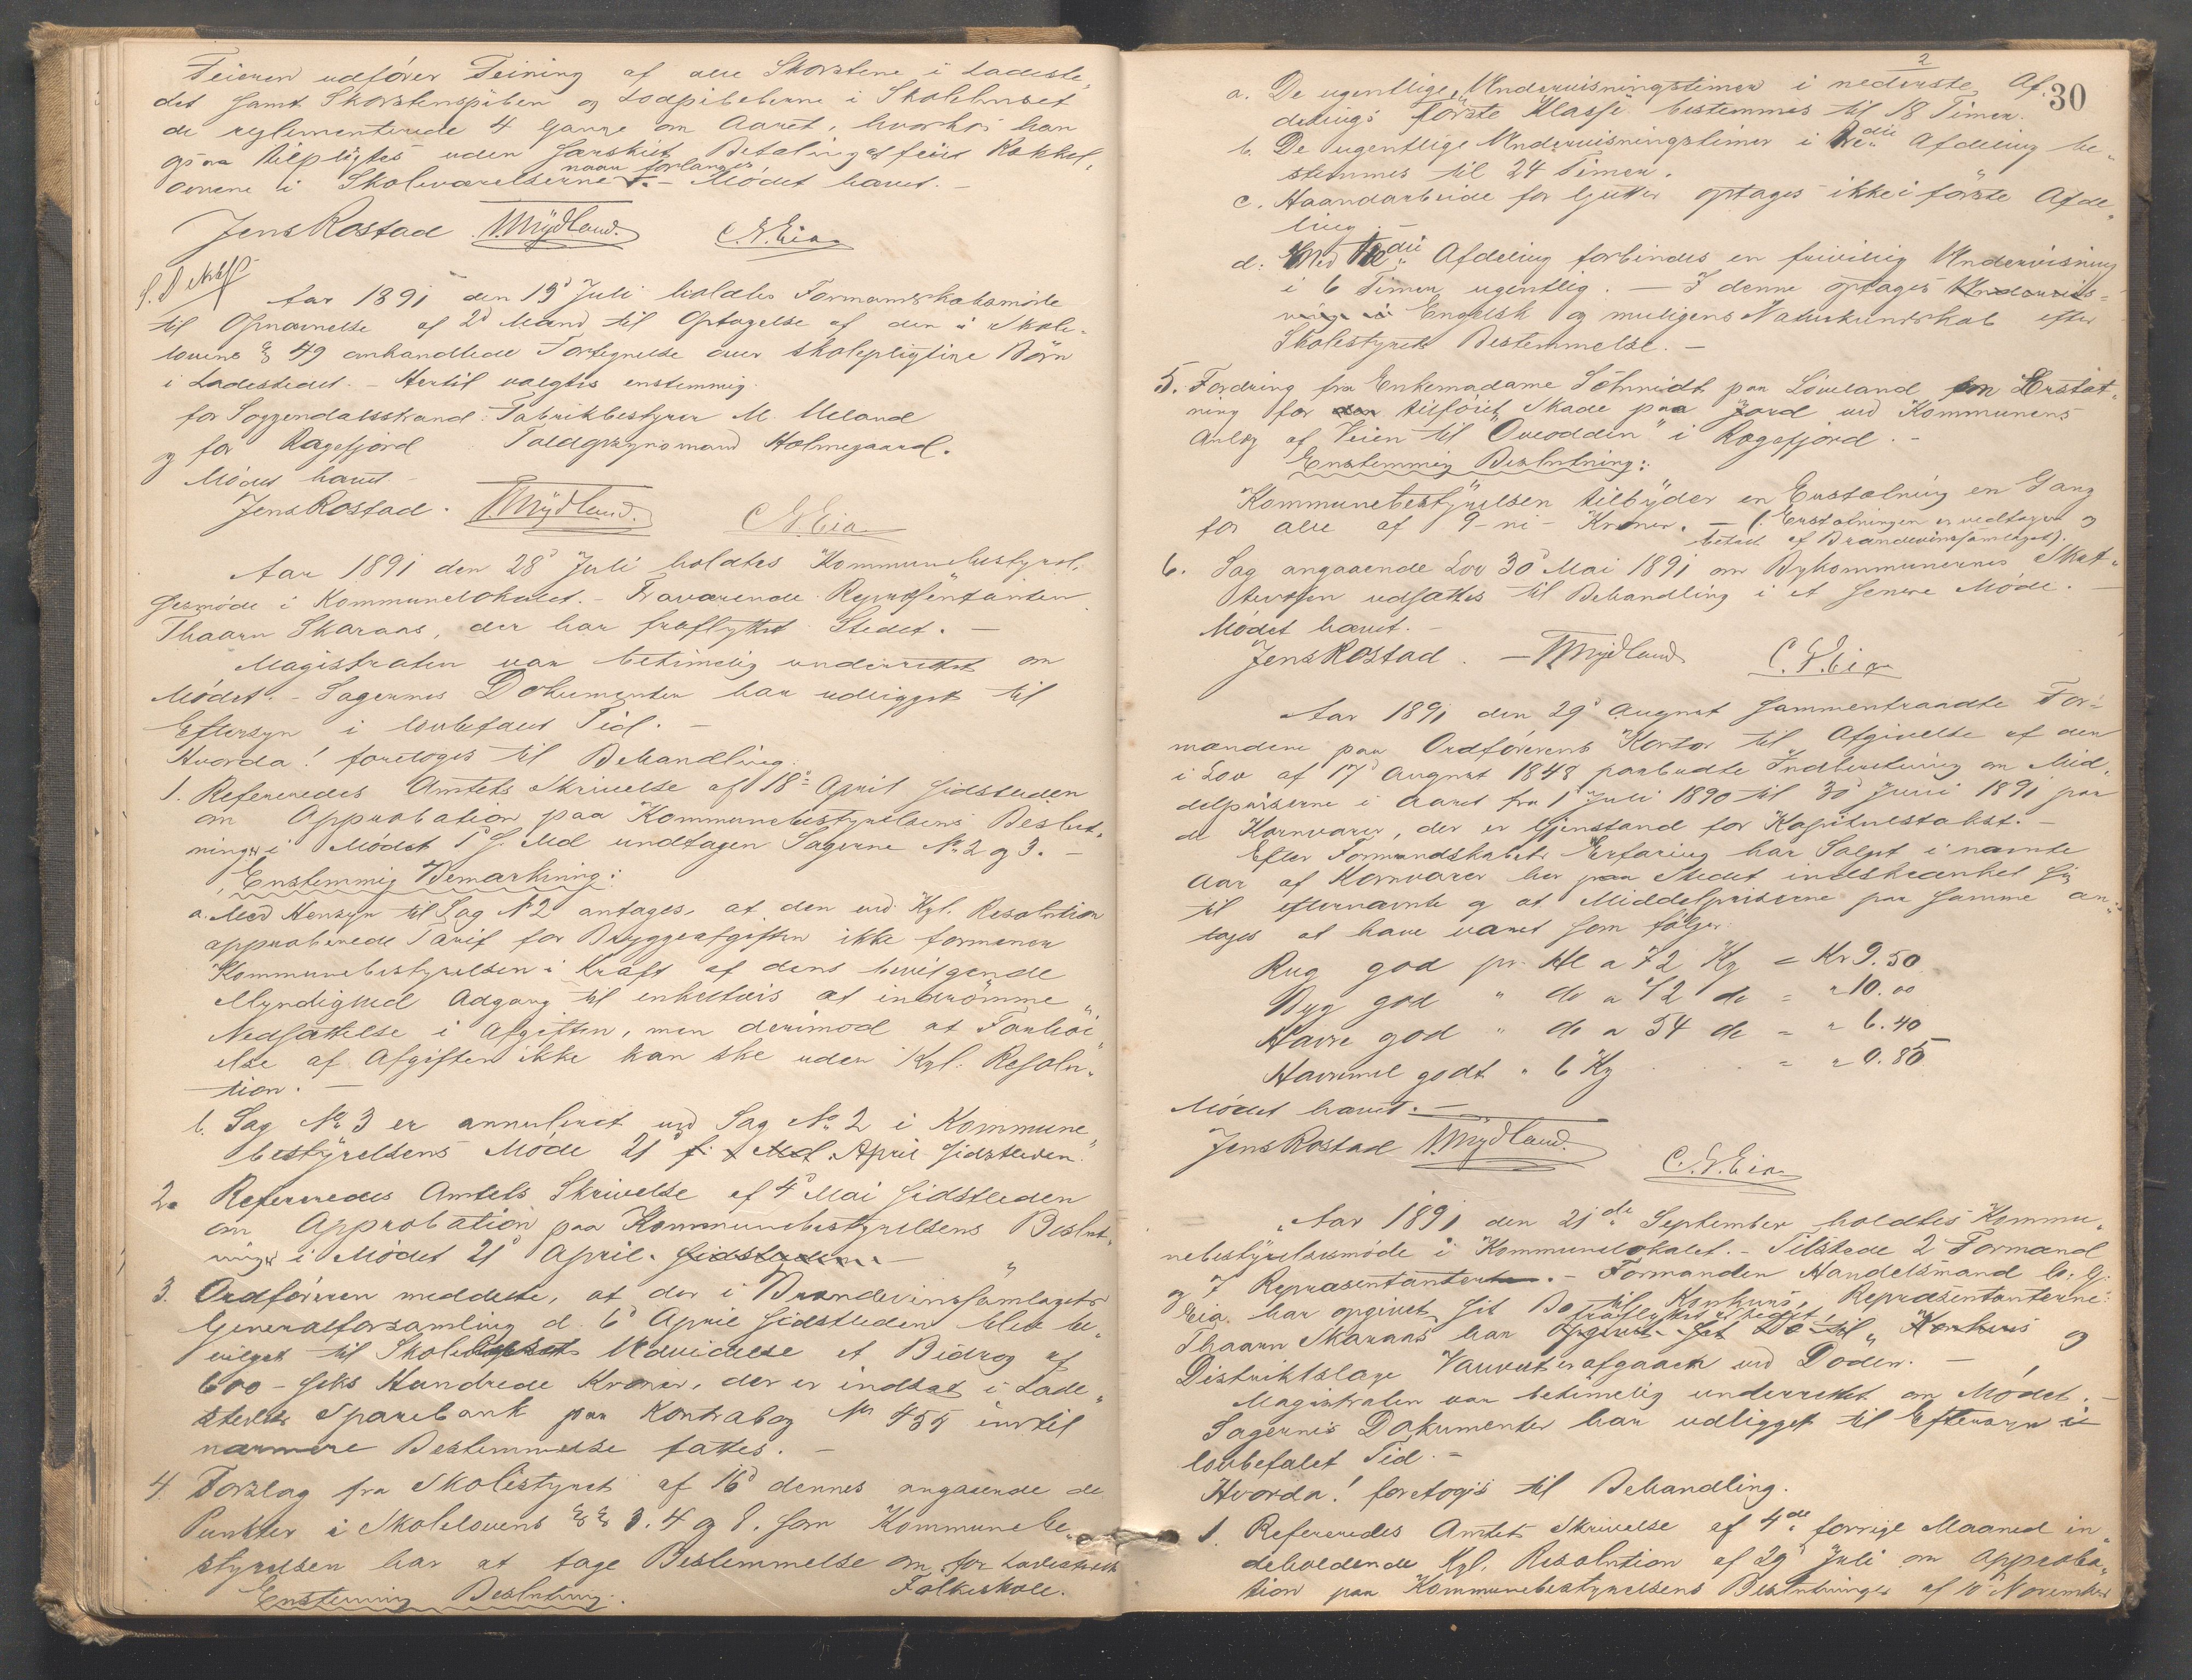 Feieren udfører Feining af alle Skorstene i Ladeste„
det samt Skorstenspiben og Lodpibeterne i Skolehuset
de reglementerede 4 Gange om Aaret, hvorhos han
ogsaa tilpligtes uden særskilt Betaling at feie Kakkel„
ovnene i Skoleværelserne naar forlanges. – Mødet hævet. –
Jens Rostad T. Mydland. C. N. Eia
Aar 1891 den 15d Juli holdtes Formandskabsmøde
til Opnævnelse af 2d Mand til Optagelse af den i Skole-
lovens § 49 omhandlede Fortegnelse over skolepligtige Børn
i Ladestedet. – Hertil valgtes enstemmig:
for Soggendalsstrand: Fabrikbestyrer M. Meland
og for Rægefjord Toldopsynsmand Holmegaard.
Mødet hævet –
Jens Rostad. T. Mydland. C. N. Eia
Aar 1891 den 28d Juli holdtes Kommunebestyrel„
sesmøde i Kommunelokalet. – Fraværende Repræsentanten
Thaarn Skaraas, der har fraflyttet Stedet. –
Magistraten var betimelig underrettet om
Mødet. – Sagernes Dokumenter har udligget til
Eftersyn i lovbefalet Tid. –
Hvorda! foretoges til Behandling.
1. Refereredes Amtets Skrivelse af 18de April sidstleden
om Approbation paa Kommunebestyrelsens Beslut„
ninger i Mødet 1d s. Md undtagen Sagerne № 2 og 3. –
Enstemmig Bemærkning:
a. Med Hensyn til Sag № 2 antages, at den ved Kgl. Resolution
approberede Tarif for Bryggeafgiften ikke formener
Kommunebestyrelsen i Kraft af dens bevilgende
Myndighed Adgang til enkeltvis at indrømme
Nedsættelse i Afgiften, men derimod at Forhøi„
else af Afgiften ikke kan ske uden Kgl. Resolu„
tion. –
b. Sag № 3 er annuleret ved Sag № 2 i Kommune„
bestyrelsens Møde 21d f. Md. April sidstleden.
2. Refereredes Amtets Skrivelse af 4d Mai sidstleden
om Approbation paa Kommunebestyrelsens Beslut„
ninger i Mødet 21d April. sidstleden. –
3. Ordføreren meddelte, at der i Brændevinssamlagets
Generalforsamling d. 6d April sidstleden blev be„
vilget til Skolehusets Udvidelse et Bidrag af
600 – seks Hundrede Kroner, der er indsat i Lade„
stedets Sparebank paa Kontrabog № 455 indtil
nærmere Bestemmelse fattes. –
4. Forslag fra Skolestyret af 16d dennes angaaende de
Punkter i Skolelovens §§ 3. 4 og 8. som Kommunebe„
styrelsen har at tage Bestemmelse om for Ladestedets
Folkeskole.
Enstemmig Beslutning:
30
a. De ugentlige Undervisningstimer i nederste 2 Af„
delings første Klasse bestemmes til 18 Timer.
b. De ugentlige Undervisningstimer i Afdeling be„
stemmes til 24 Timer.
c. Haandarbeide for Gutter optages ikke i første Afde„
ling. –
d. Med Afdeling forbindes en frivillig Undervisning
i 6 Timer ugentlig. – I denne optages Undervis-
ning i Engelsk og muligens Naturkundskab efter
Skolestyrets Bestemmelse. –
5. Fordring fra Enkemadame Schmidt paa Løveland om Erstat„
ning for tilføiet Skade paa Jord ved Kommunens
Anlæg af Veien til "Oveodden" i Rægefjord. –
Enstemmig Beslutning:
Kommunebestyrelsen tilbyder en Erstatning en Gang
for alle af 9 – ni – Kroner. – (: Erstatningen er vedtagen og
betalt af Brændevinssamlaget:).
6. Sag angaaende Lov 30d Mai 1891 om Bykommunernes Skat„
tevæsen udsattes til Behandling i et senere Møde. –
Mødet hævet. –
Jens Rostad. – T. Mydland C. N. Eia
Aar 1891 den 29d August sammentraadte For-
mændene paa Ordførerens Kontor til Afgivelse af den
i Lov af 17d August 1848 paabudte Indberetning om Mid„
delpriserne i Aaret fra 1d Juli 1890 til 30d Juni 1891 paa
de Kornvarer, der er Gjenstand for Kapitelstakst. –
Efter Formandskabets Erfaring har Salget i nævnte
Aar af Kornvarer her paa Stedet indskrænket sig
til efternævnte og at Middelpriserne paa samme an„
tages at have været som følger:
Rug god pr. Hl a 72 Kg = Kr 9.50
Byg god " do a 72 do = " 10.00
Havre god " do a 54 do = " 6.40
Havremel godt " 6 Kg . . = " 0.85
Mødet hævet. –
Jens Rostad T. Mydland. C. N. Eia
Aar 1891 den 21de September holdtes Kommu„
nebestyrelsesmøde i Kommunelokalet. – Tilstede 2 Formænd
og 7 Repræsentanter. – Formanden Handelsmand C. N.
Eia har opgivet sit Bo til Konkurs, Repræsentanterne:
Thaarn Skaraas har fraflyttet Stedet opgivet sit Bo til Konkurs og
Distriktslæge Vauvert er afgaaet ved Døden. –
Magistraten var betimelig underrettet om Mødet. –
Sagernes Dokumenter har udligget til Eftersyn i
lovbefalet Tid. –
Hvorda! foretoges til Behandling.
1. Refereredes Amtets Skrivelse af 4de forrige Maaned in„
deholdende Kgl. Resolution af 29d Juli om Approba„
tion paa Kommunebestyrelsens Beslutninger af 10d November